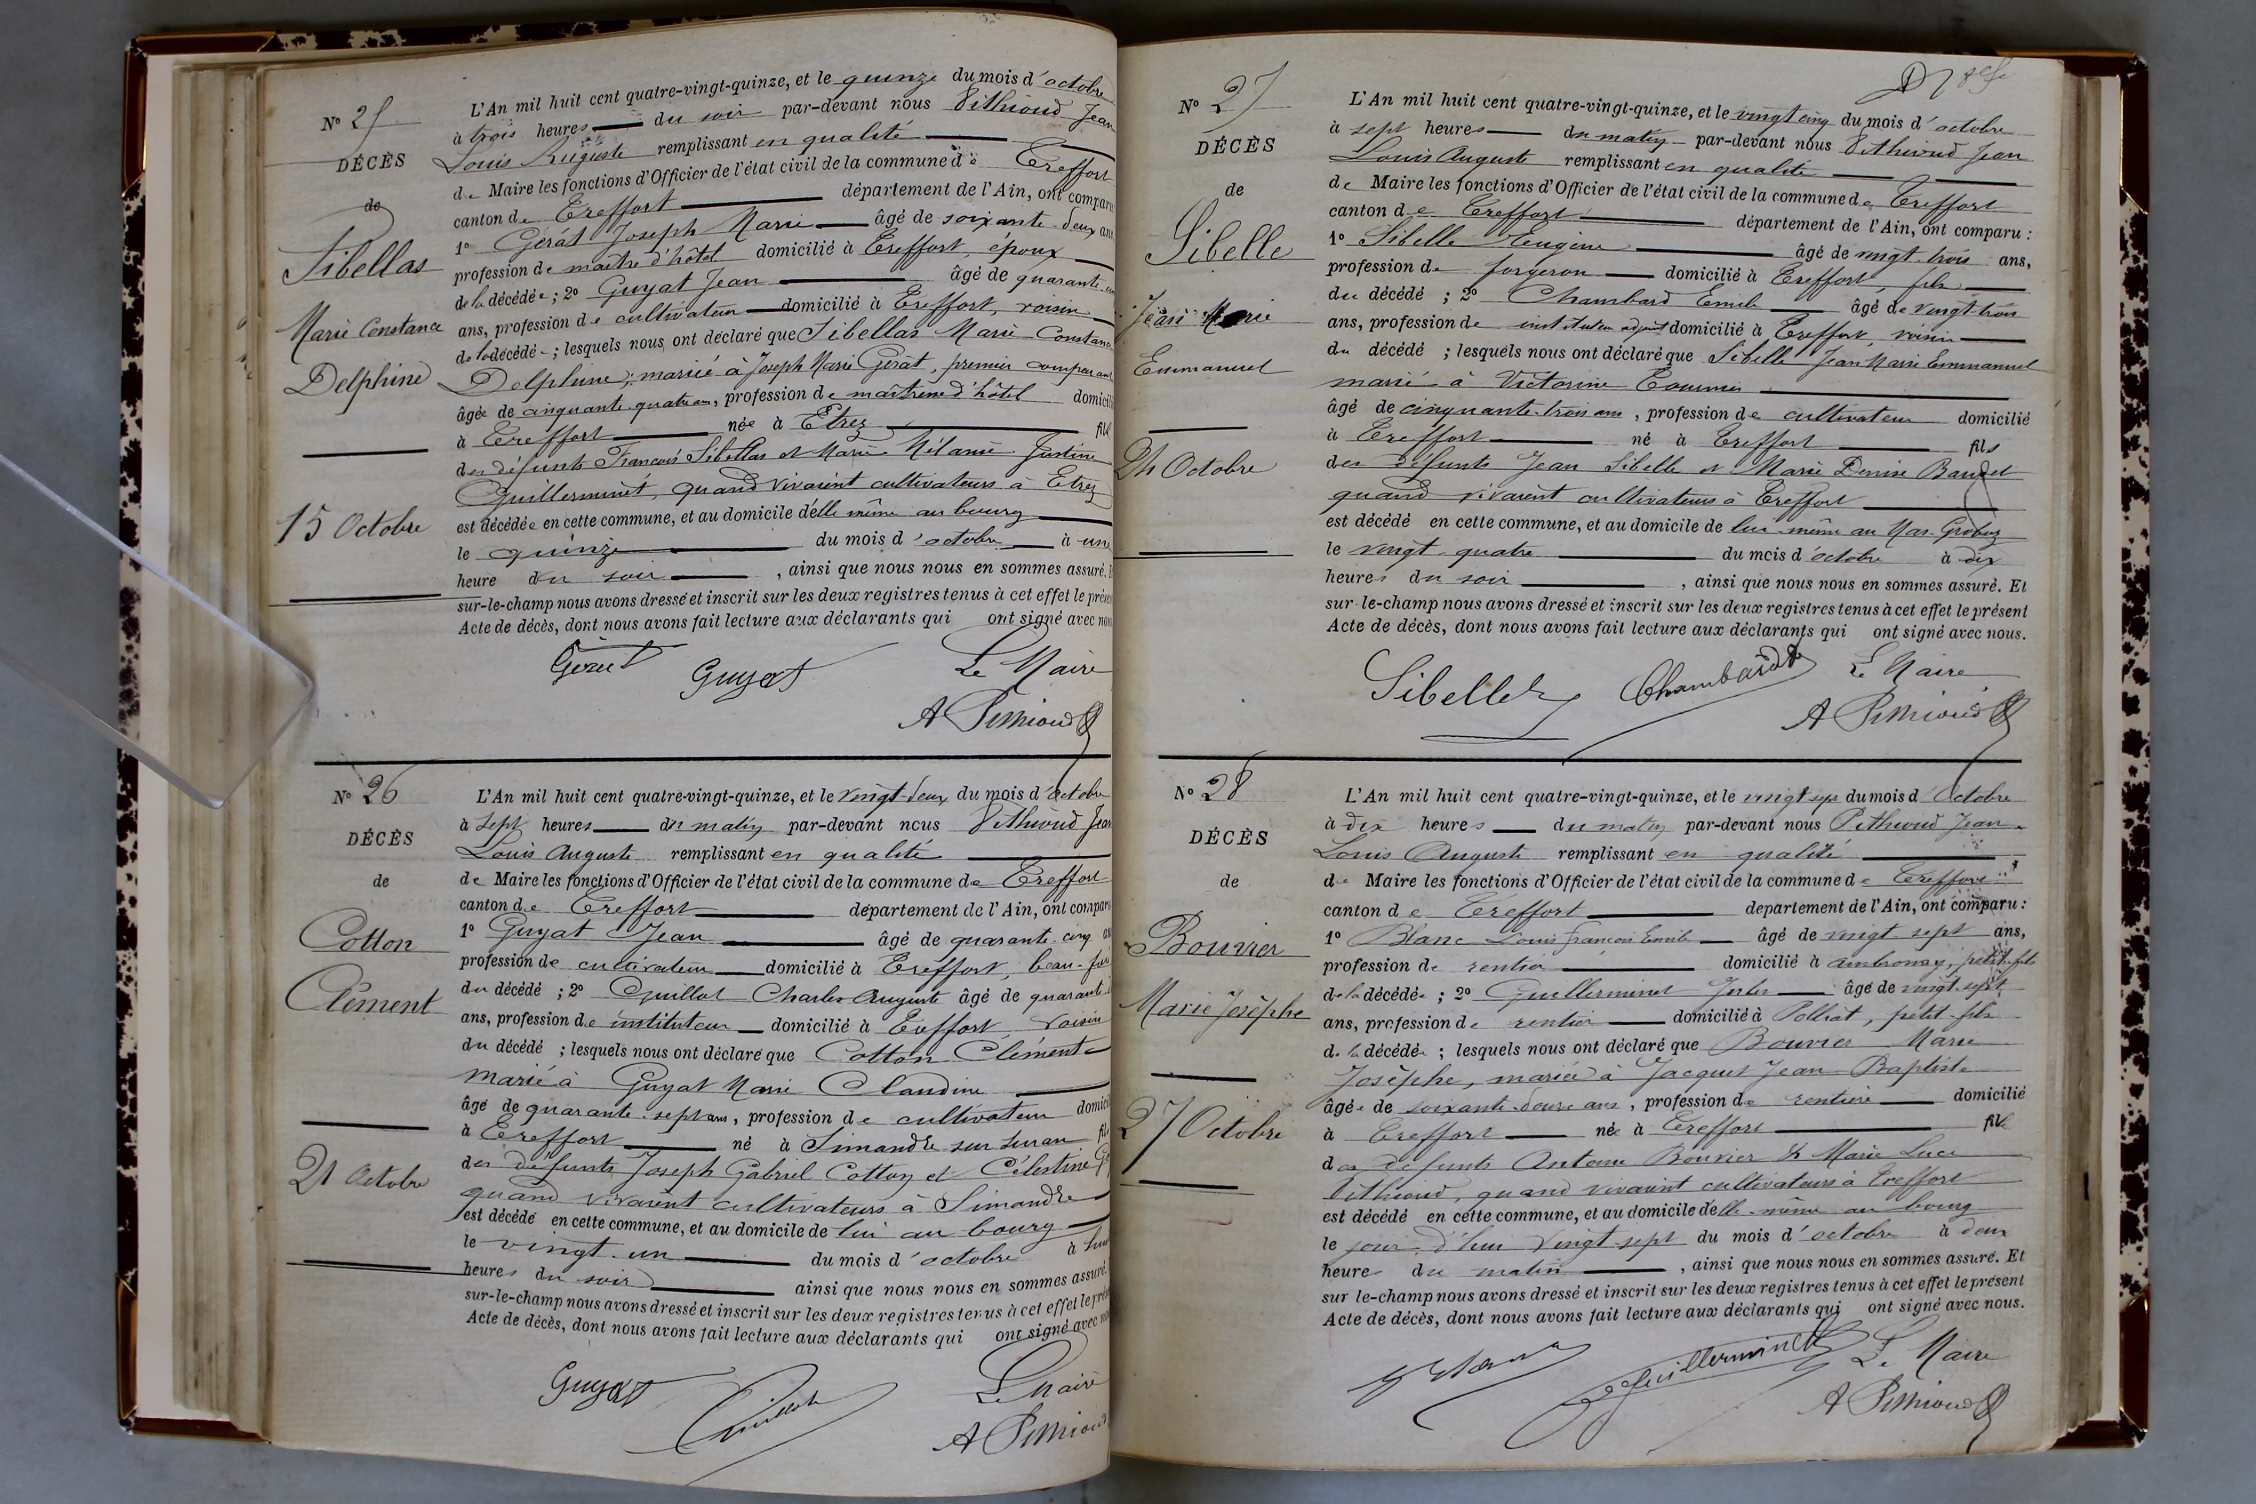 N° 25
DÉCÈS
de
Sibellas
Marie Constance
Delphine
15 Octobre
L'An mil huit cent quatre-vingt-quinze, et le quinze du mois d'octobre
à trois heures du soir par-devant nous Pithioud Jean
Louis Auguste remplissant en qualité
de Maire les fonctions d'Officier de l'état civil de la commune de Treffort
canton de Treffort département de l'Ain, ont comparu
1° Gérat Joseph Marie âgé de soixante-deux ans
profession de maître d'hôtel domicilié à Treffort, époux
de la décédée ; 2° Guyat Jean âgé de quarante
ans, profession de cultivateur domicilié à Treffort, voisin
de la décédée ; lesquels nous ont déclaré que Sibellas Marie Constance
Delphine, mariée à Joseph Marie Gérat, premier comparant
âgée de cinquante-quatre ans, profession de maîtresse d'hôtel domicil
à Treffort née à Etrez fille
des défunts François Sibellas et Marie Mélanie Justine
Guillerminet, quand vivaient cultivateurs à Etrez
est décédée en cette commune, et au domicile d'elle même au bourg
le quinze du mois d'octobre à une
heure du soir , ainsi que nous nous en sommes assuré. E
sur-le-champ nous avons dressé et inscrit sur les deux registres tenus à cet effet le prése
Acte de décès, dont nous avons fait lecture aux déclarants qui ont signé avec nous
Gérat Guyat Le Maire
A Pithioud
N° 26
DÉCÈS
de
Cotton
Clément
21 Octobre
L'An mil huit cent quatre-vingt-quinze, et le vingt-deux du mois d'octobre
à sept heures du matin par-devant nous Pithioud Jean
Louis Auguste remplissant en qualité
de Maire les fonctions d'Officier de l'état civil de la commune de Treffort
canton de Treffort département de l'Ain, ont comparu
1° Guyat Jean âgé de quarante-cinq ans
profession de cultivateur domicilié à Treffort, beau-frère
du décédé ; 2° Guillot Charles Auguste âgé de quarante
ans, profession de instituteur domicilié à Treffort voisin
du décédé ; lesquels nous ont déclaré que Cotton Clément
marié à Guyat Marie Claudine
âgé de quarante-sept ans, profession de cultivateur domicil
à Treffort né à Simandre sur Suran fils
des défunts Joseph Gabriel Cotton et Célestine
quand vivaient cultivateurs à Simandre
est décédé en cette commune, et au domicile de lui au bourg
le vingt-un du mois d'octobre à
heures du soir ainsi que nous nous en sommes assuré.
sur-le-champ nous avons dressé et inscrit sur les deux registres tenus à cet effet le prése
Acte de décès, dont nous avons fait lecture aux déclarants qui ont signé avec nous
Guyat Guillot Le Maire
A Pithioud
N° 27
DÉCÈS
de
Sibelle
Jean Marie
Emmanuel
24 Octobre
L'An mil huit cent quatre-vingt-quinze, et le vingt cinq du mois d'octobre
à sept heures du matin par-devant nous Pithioud Jean
Louis Auguste remplissant en qualité
de Maire les fonctions d'Officier de l'état civil de la commune de Treffort
canton de Treffort département de l'Ain, ont comparu :
1° Sibelle Eugène âgé de vingt-trois ans,
profession de forgeron domicilié à Treffort, fils
du décédé ; 2° Chambard Emile âgé de vingt-trois
ans, profession de instituteur adjoint domicilié à Treffort, voisin
du décédé ; lesquels nous ont déclaré que Sibelle Jean Marie Emmanuel
marié à Victorine
âgé de cinquante-trois ans, profession de cultivateur domicilié
à Treffort né à Treffort fils
des défunts Jean Sibelle et Marie Denise Baudet
quand vivaient cultivateurs à Treffort
est décédé en cette commune, et au domicile de lui-même au Mas Groboz
le vingt-quatre du mois d'octobre à dix
heures du soir , ainsi que nous nous en sommes assuré. Et
sur-le-champ nous avons dressé et inscrit sur les deux registres tenus à cet effet le présent
Acte de décès, dont nous avons fait lecture aux déclarants qui ont signé avec nous.
Sibelle Chambard Le Maire
A Pithioud
N° 28
DÉCÈS
de
Bouvier
Marie Josèphe
27 Octobre
L'An mil huit cent quatre-vingt-quinze, et le vingt sept du mois d'Octobre
à dix heures du matin par-devant nous Pithioud Jean
Louis Auguste remplissant en qualité
de Maire les fonctions d'Officier de l'état civil de la commune de Treffort
canton de Treffort département de l'Ain, ont comparu :
1° Blanc Louis François Emile âgé de vingt sept ans,
profession de rentier domicilié à Ambronay, petit-fils
de la décédée ; 2° Guillerminet Jules âgé de vingt-sept
ans, profession de rentier domicilié à Polliat, petit-fils
de la décédée ; lesquels nous ont déclaré que Bouvier Marie
Josèphe, mariée à Jacquet Jean Baptiste
âgée de soixante-douze ans, profession de rentière domicilié
à Treffort née à Treffort fille
des défunts Antoine Bouvier & Marie Luce
Pithioud, quand vivaient cultivateurs à Treffort
est décédé en cette commune, et au domicile d'elle-même au bourg
le jour d'hui vingt-sept du mois d'octobre à deux
heures du matin , ainsi que nous nous en sommes assuré. Et
sur le-champ nous avons dressé et inscrit sur les deux registres tenus à cet effet le présent
Acte de décès, dont nous avons fait lecture aux déclarants qui ont signé avec nous.
Guillerminet Le Maire
A Pithioud